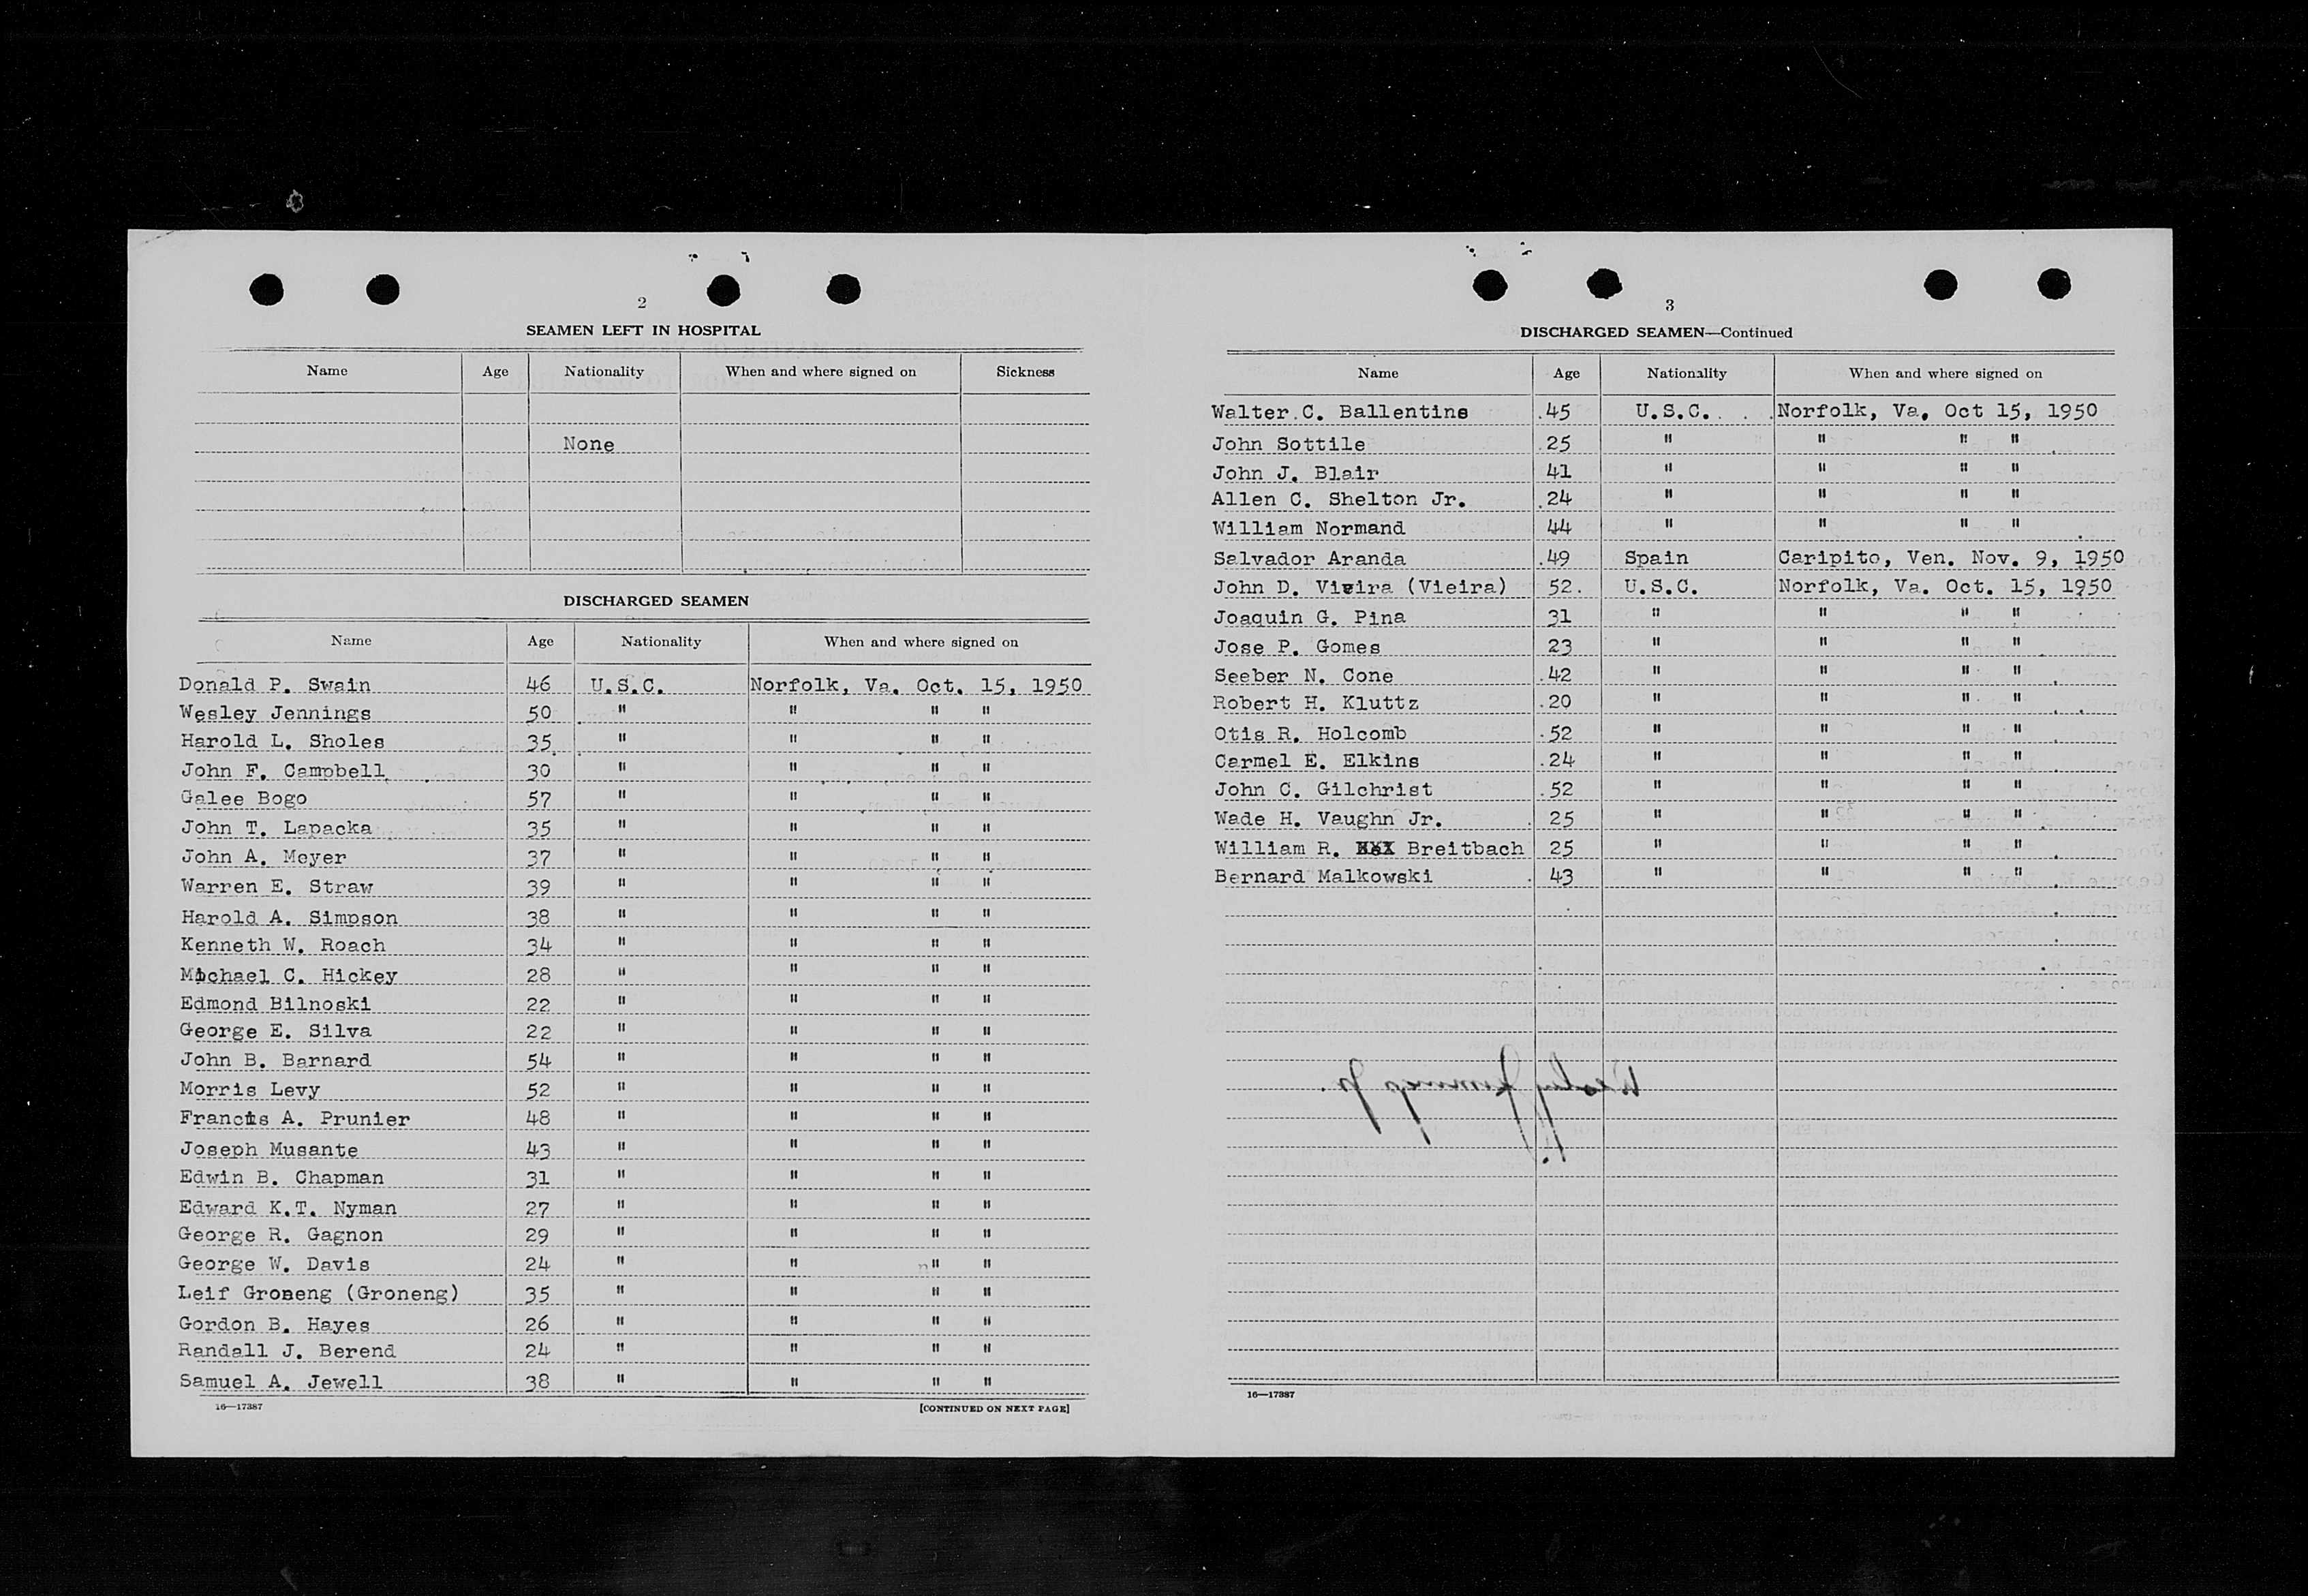 2
SEAMEN LEFT IN HOSPITAL
Name Age Nationality When and where signed on Sickness
None
DISCHARGED SEAMEN
Name Age Nationality When and where signed on
Donald P. Swain 46 U.S.C. Norfolk, Va. Oct. 15, 1950
Wesley Jennings 50 " " " "
Harold L. Sholes 35 " " " "
John F. Campbell 30 " " " "
Galee Bogo 57 " " " "
John T. Lapacka 35 " " " "
John A. Meyer 37 " " " "
Warren E. Straw 39 " " " "
Harold A. Simpson 38 " " " "
Kenneth W. Roach 34 " " " "
Michael C. Hickey 28 " " " "
Edmond Bilnoski 22 " " " "
George E. Silva 22 " " " "
John B. Barnard 54 " " " "
Morris Levy 52 " " " "
Francis A. Prunier 48 " " " "
Joseph Musante 43 " " " "
Edwin B. Chapman 31 " " " "
Edward K.T. Nyman 27 " " " "
George R. Gagnon 29 " " " "
George W. Davis 24 " " " "
Leif Groneng (Groneng) 35 " " " "
Gordon B. Hayes 26 " " " "
Randall J. Berend 24 " " " "
Samuel A. Jewell 38 " " " "
16—17387 [CONTINUED ON NEXT PAGE]
3
DISCHARGED SEAMEN—Continued
Name Age Nationality When and where signed on
Walter C. Ballentine 45 U.S.C. Norfolk, Va. Oct 15, 1950
John Sottile 25 " " " "
John J. Blair 41 " " " "
Allen C. Shelton Jr. 24 " " " "
William Normand 44 " " " "
Salvador Aranda 49 Spain Caripito, Ven. Nov. 9, 1950
John D. Vieira (Vieira) 52. U.S.C. Norfolk, Va. Oct. 15, 1950
Joaquin G. Pina 31 " " " "
Jose P. Gomes 23 " " " "
Seeber N. Cone 42 " " " "
Robert H. Kluttz 20 " " " "
Otis R. Holcomb 52 " " " "
Carmel E. Elkins 24 " " " "
John C. Gilchrist 52 " " " "
Wade H. Vaughn Jr. 25 " " " "
William R. Breitbach 25 " " " "
Bernard Malkowski 43 " " " "
Wesley Jennings Jr.
16—17387